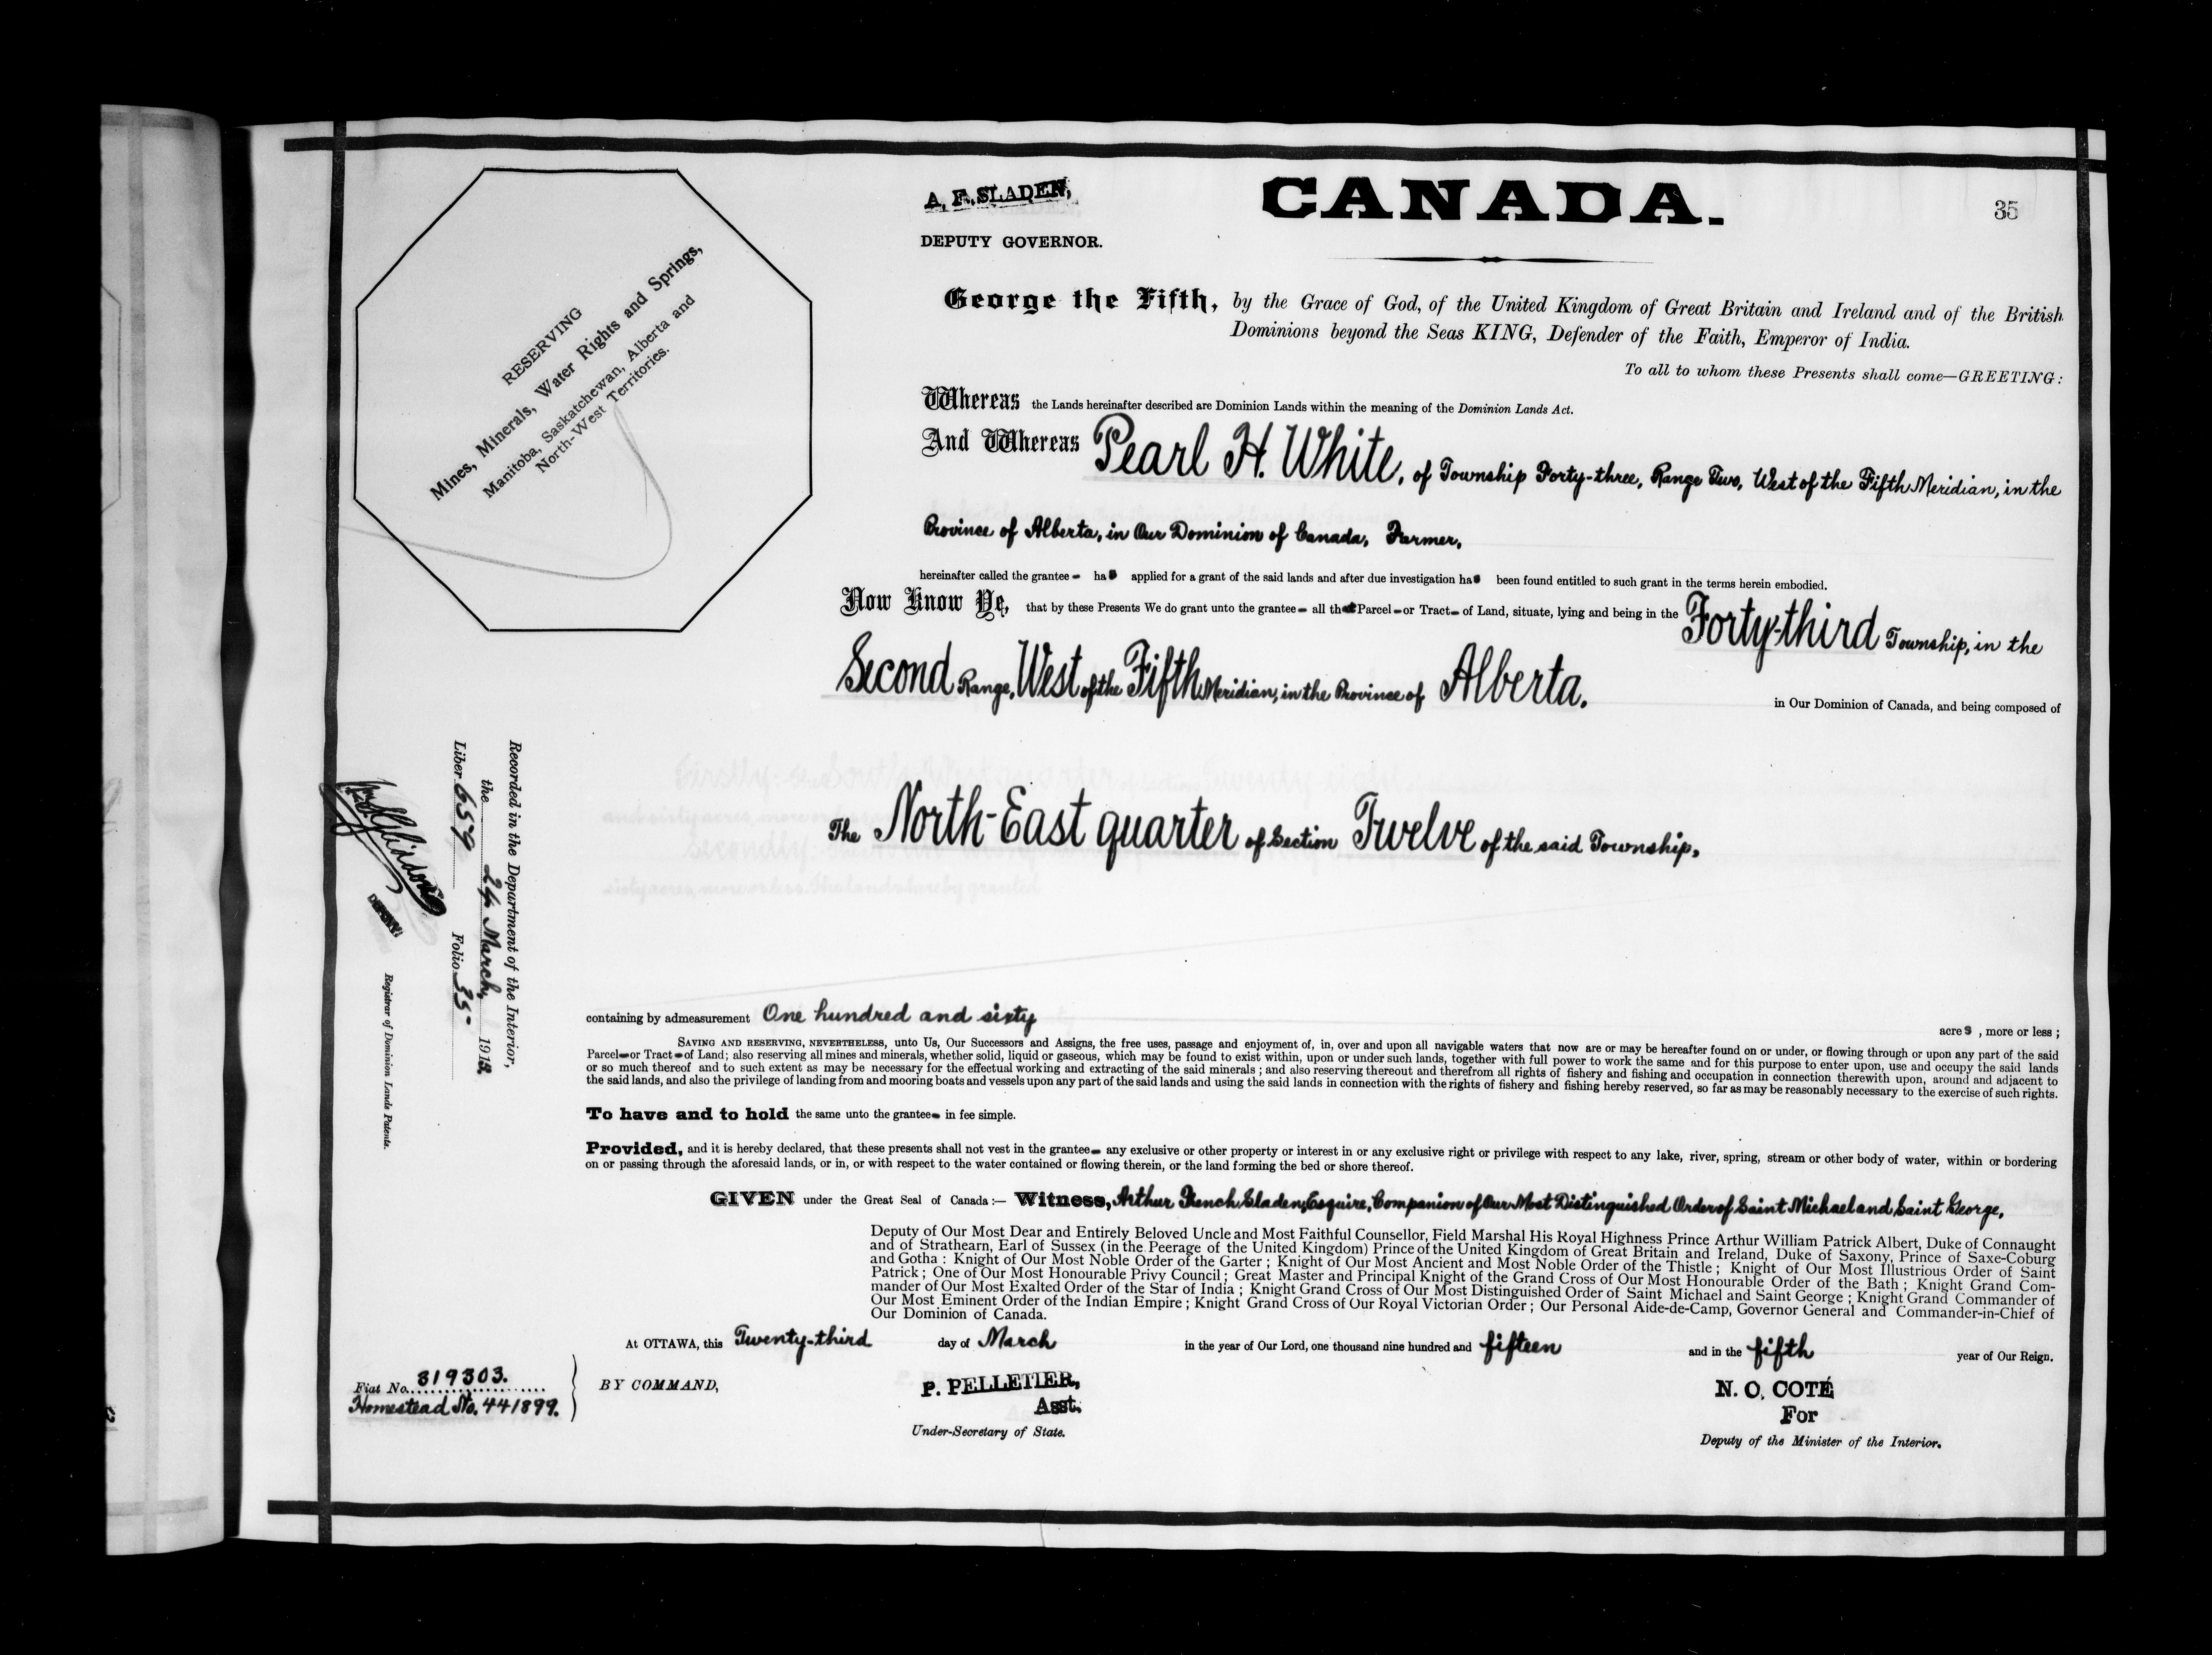 RESERVING
Mines, Minerals, Water Rights and Springs,
Manitoba, Saskatchewan, Alberta and
North-West Territories.
A. F. SLADEN,
DEPUTY GOVERNOR.
CANADA.
35
George the Fifth, by the Grace of God, of the United Kingdom of Great Britain and Ireland and of the British
Dominions beyond the Seas KING, Defender of the Faith, Emperor of India.
To all to whom these Presents shall come—GREETING:
Whereas the Lands hereinafter described are Dominion Lands within the meaning of the Dominion Lands Act.
And Whereas Pearl H. White, of Township Forty-three, Range Two, West of the Fifth Meridian, in the
Province of Alberta, in Our Dominion of Canada, Farmer,
hereinafter called the grantee- has applied for a grant of the said lands and after due investigation has been found entitled to such grant in the terms herein embodied.
Now Know Ye, that by these Presents We do grant unto the grantee- all that Parcel-or Tract- of Land, situate, lying and being in the Forty-third Township, in the
Second Range, West of the Fifth Meridian, in the Province of Alberta. in Our Dominion of Canada, and being composed of
The North-East quarter of Section Twelve of the said Township,
containing by admeasurement One hundred and sixty acres, more or less;
SAVING AND RESERVING, NEVERTHELESS, unto Us, Our Successors and Assigns, the free uses, passage and enjoyment of, in, over and upon all navigable waters that now are or may be hereafter found on or under, or flowing through or upon any part of the said
Parcel-or Tract-of Land; also reserving all mines and minerals, whether solid, liquid or gaseous, which may be found to exist within, upon or under such lands, together with full power to work the same and for this purpose to enter upon, use and occupy the said lands
or so much thereof and to such extent as may be necessary for the effectual working and extracting of the said minerals; and also reserving thereout and therefrom all rights of fishery and fishing and occupation in connection therewith upon, around and adjacent to
the said lands, and also the privilege of landing from and mooring boats and vessels upon any part of the said lands and using the said lands in connection with the rights of fishery and fishing hereby reserved, so far as may be reasonably necessary to the exercise of such rights.
To have and to hold the same unto the grantee- in fee simple.
Provided, and it is hereby declared, that these presents shall not vest in the grantee- any exclusive or other property or interest in or any exclusive right or privilege with respect to any lake, river, spring, stream or other body of water, within or bordering
on or passing through the aforesaid lands, or in, or with respect to the water contained or flowing therein, or the land forming the bed or shore thereof.
GIVEN under the Great Seal of Canada:— Witness, Arthur French Sladen, Esquire, Companion of Our Most Distinguished Order of Saint Michael and Saint George,
Deputy of Our Most Dear and Entirely Beloved Uncle and Most Faithful Counsellor, Field Marshal His Royal Highness Prince Arthur William Patrick Albert, Duke of Connaught
and of Strathearn, Earl of Sussex (in the Peerage of the United Kingdom) Prince of the United Kingdom of Great Britain and Ireland, Duke of Saxony, Prince of Saxe-Coburg
and Gotha: Knight of Our Most Noble Order of the Garter; Knight of Our Most Ancient and Most Noble Order of the Thistle; Knight of Our Most Illustrious Order of Saint
Patrick; One of Our Most Honourable Privy Council; Great Master and Principal Knight of the Grand Cross of Our Most Honourable Order of the Bath; Knight Grand Com-
mander of Our Most Exalted Order of the Star of India; Knight Grand Cross of Our Most Distinguished Order of Saint Michael and Saint George; Knight Grand Commander of
Our Most Eminent Order of the Indian Empire; Knight Grand Cross of Our Royal Victorian Order; Our Personal Aide-de-Camp, Governor General and Commander-in-Chief of
Our Dominion of Canada.
At OTTAWA, this Twenty-third day of March in the year of Our Lord, one thousand nine hundred and fifteen and in the fifth year of Our Reign.
Fiat No. 319303.
Homestead No. 441899.
BY COMMAND,
P. PELLETIER,
Asst.
Under-Secretary of State.
N. O. COTÉ
For
Deputy of the Minister of the Interior.
Recorded in the Department of the Interior,
the 24 March, 1915.
Liber 659 Folio 35
DEPUTY
Registrar of Dominion Lands Patents.